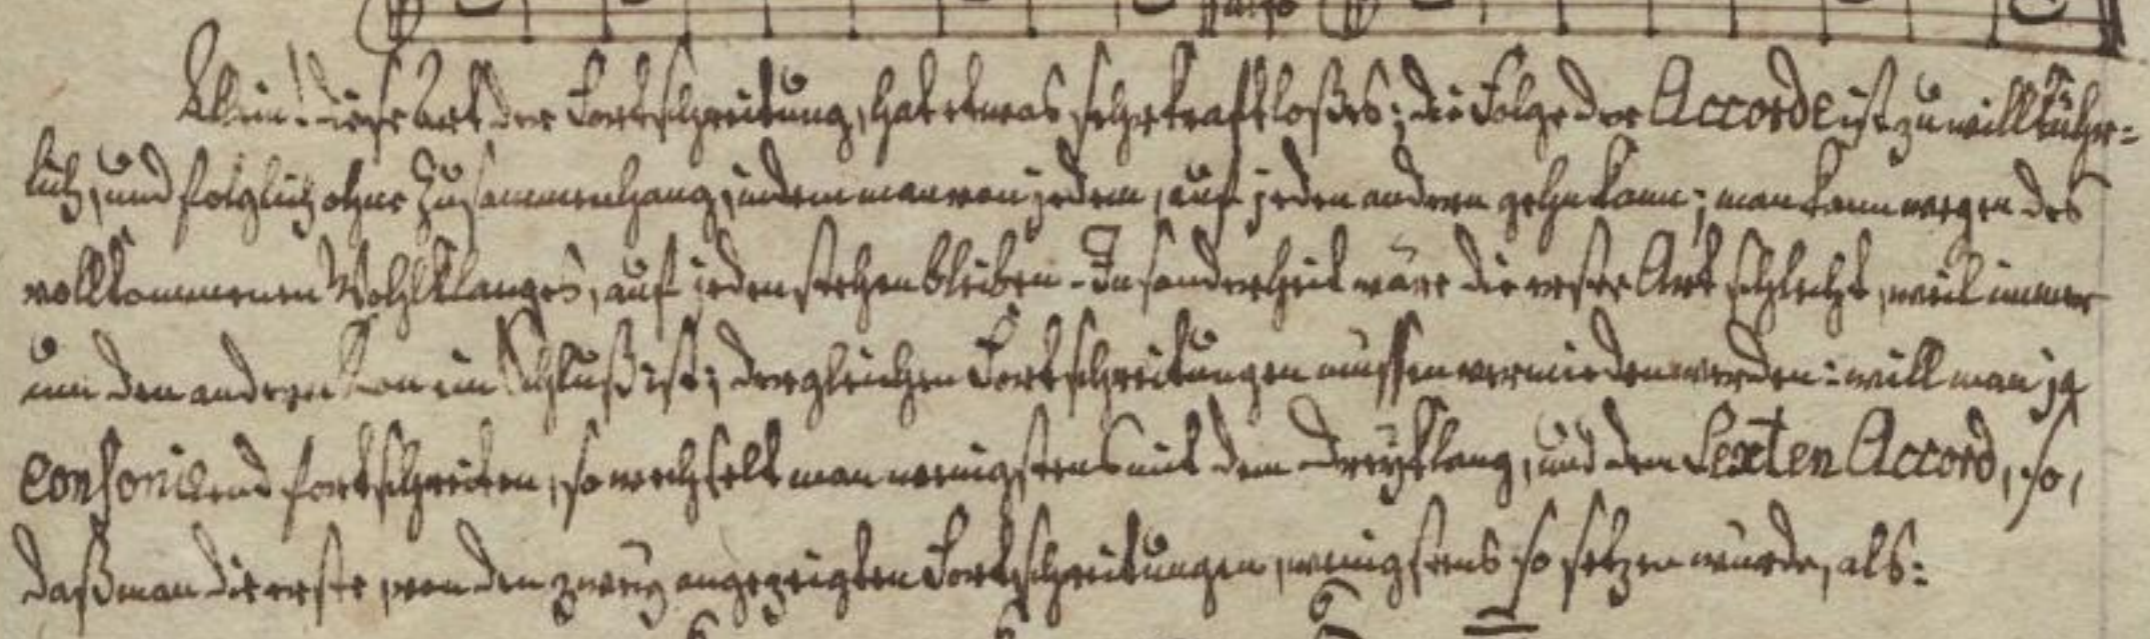 Allein! diese Art der Fortschreitung, hat etwas sehr kraftloßes; die Folge der Accorde ist zu willkühr=
lich, und folglich ohne Zusammenhang, indem man von jedem, auf jeden andern gehn kann; man kann wegen des
vollkommenen Wohlklanges, auf jeden stehen bleiben. Insonderheit wäre die erste Art schlecht, weil immer
um den andern Ton ein Schluß ist; dergleichen Fortschreitungen müssen vermieden werden: will man ja
consonirend fortschreiten, so wechselt man wenigstens mit dem Dreyklang, und dem Sexten Accord, so,
daß man die erste, von den zwey angezeigten Fortschreitungen, wenigstens so setzen würde, als: